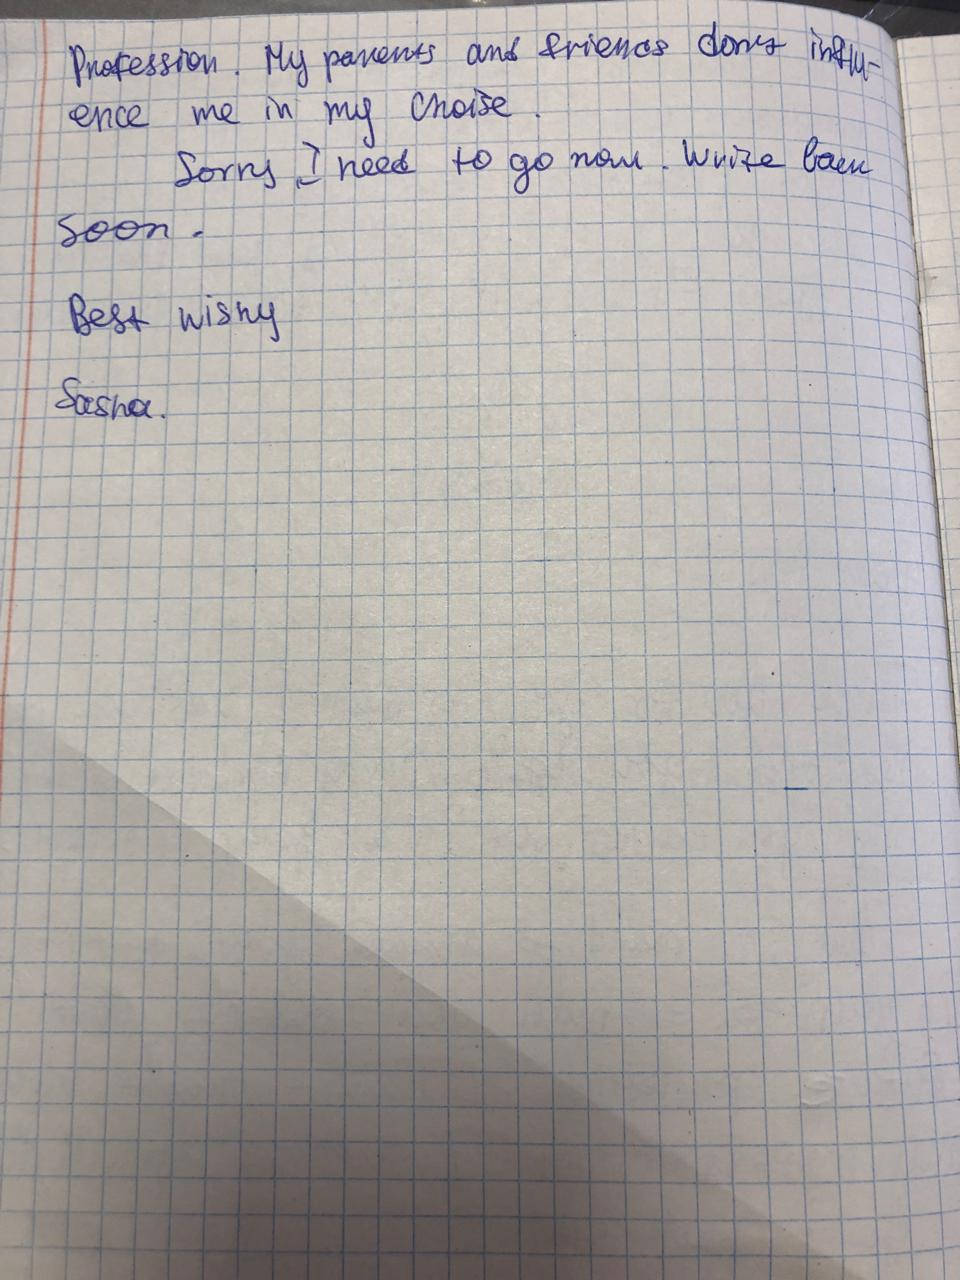 Profession. My parents and friends dont influ-
ence me in my choise.
Sorry I need to go now. Write back
soon.
Best wishy
Sasha.